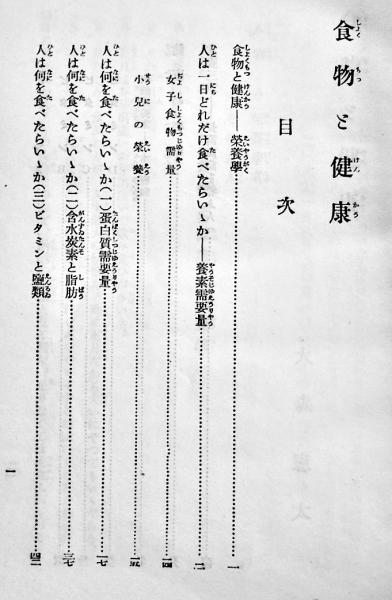 食物と健康
目次
食物と健康――榮養學………一
人は一日どれだけ食べたらいゝか――養素需要量………二
女子食物需要量………二四
小兒の榮養………二五
人は何を食べたらいゝか(一)蛋白質需要量………一七
人は何を食べたらいゝか(二)含水炭素と脂肪………三七
人は何を食べたらいゝか(三)ビタミンと鹽類………四二
一